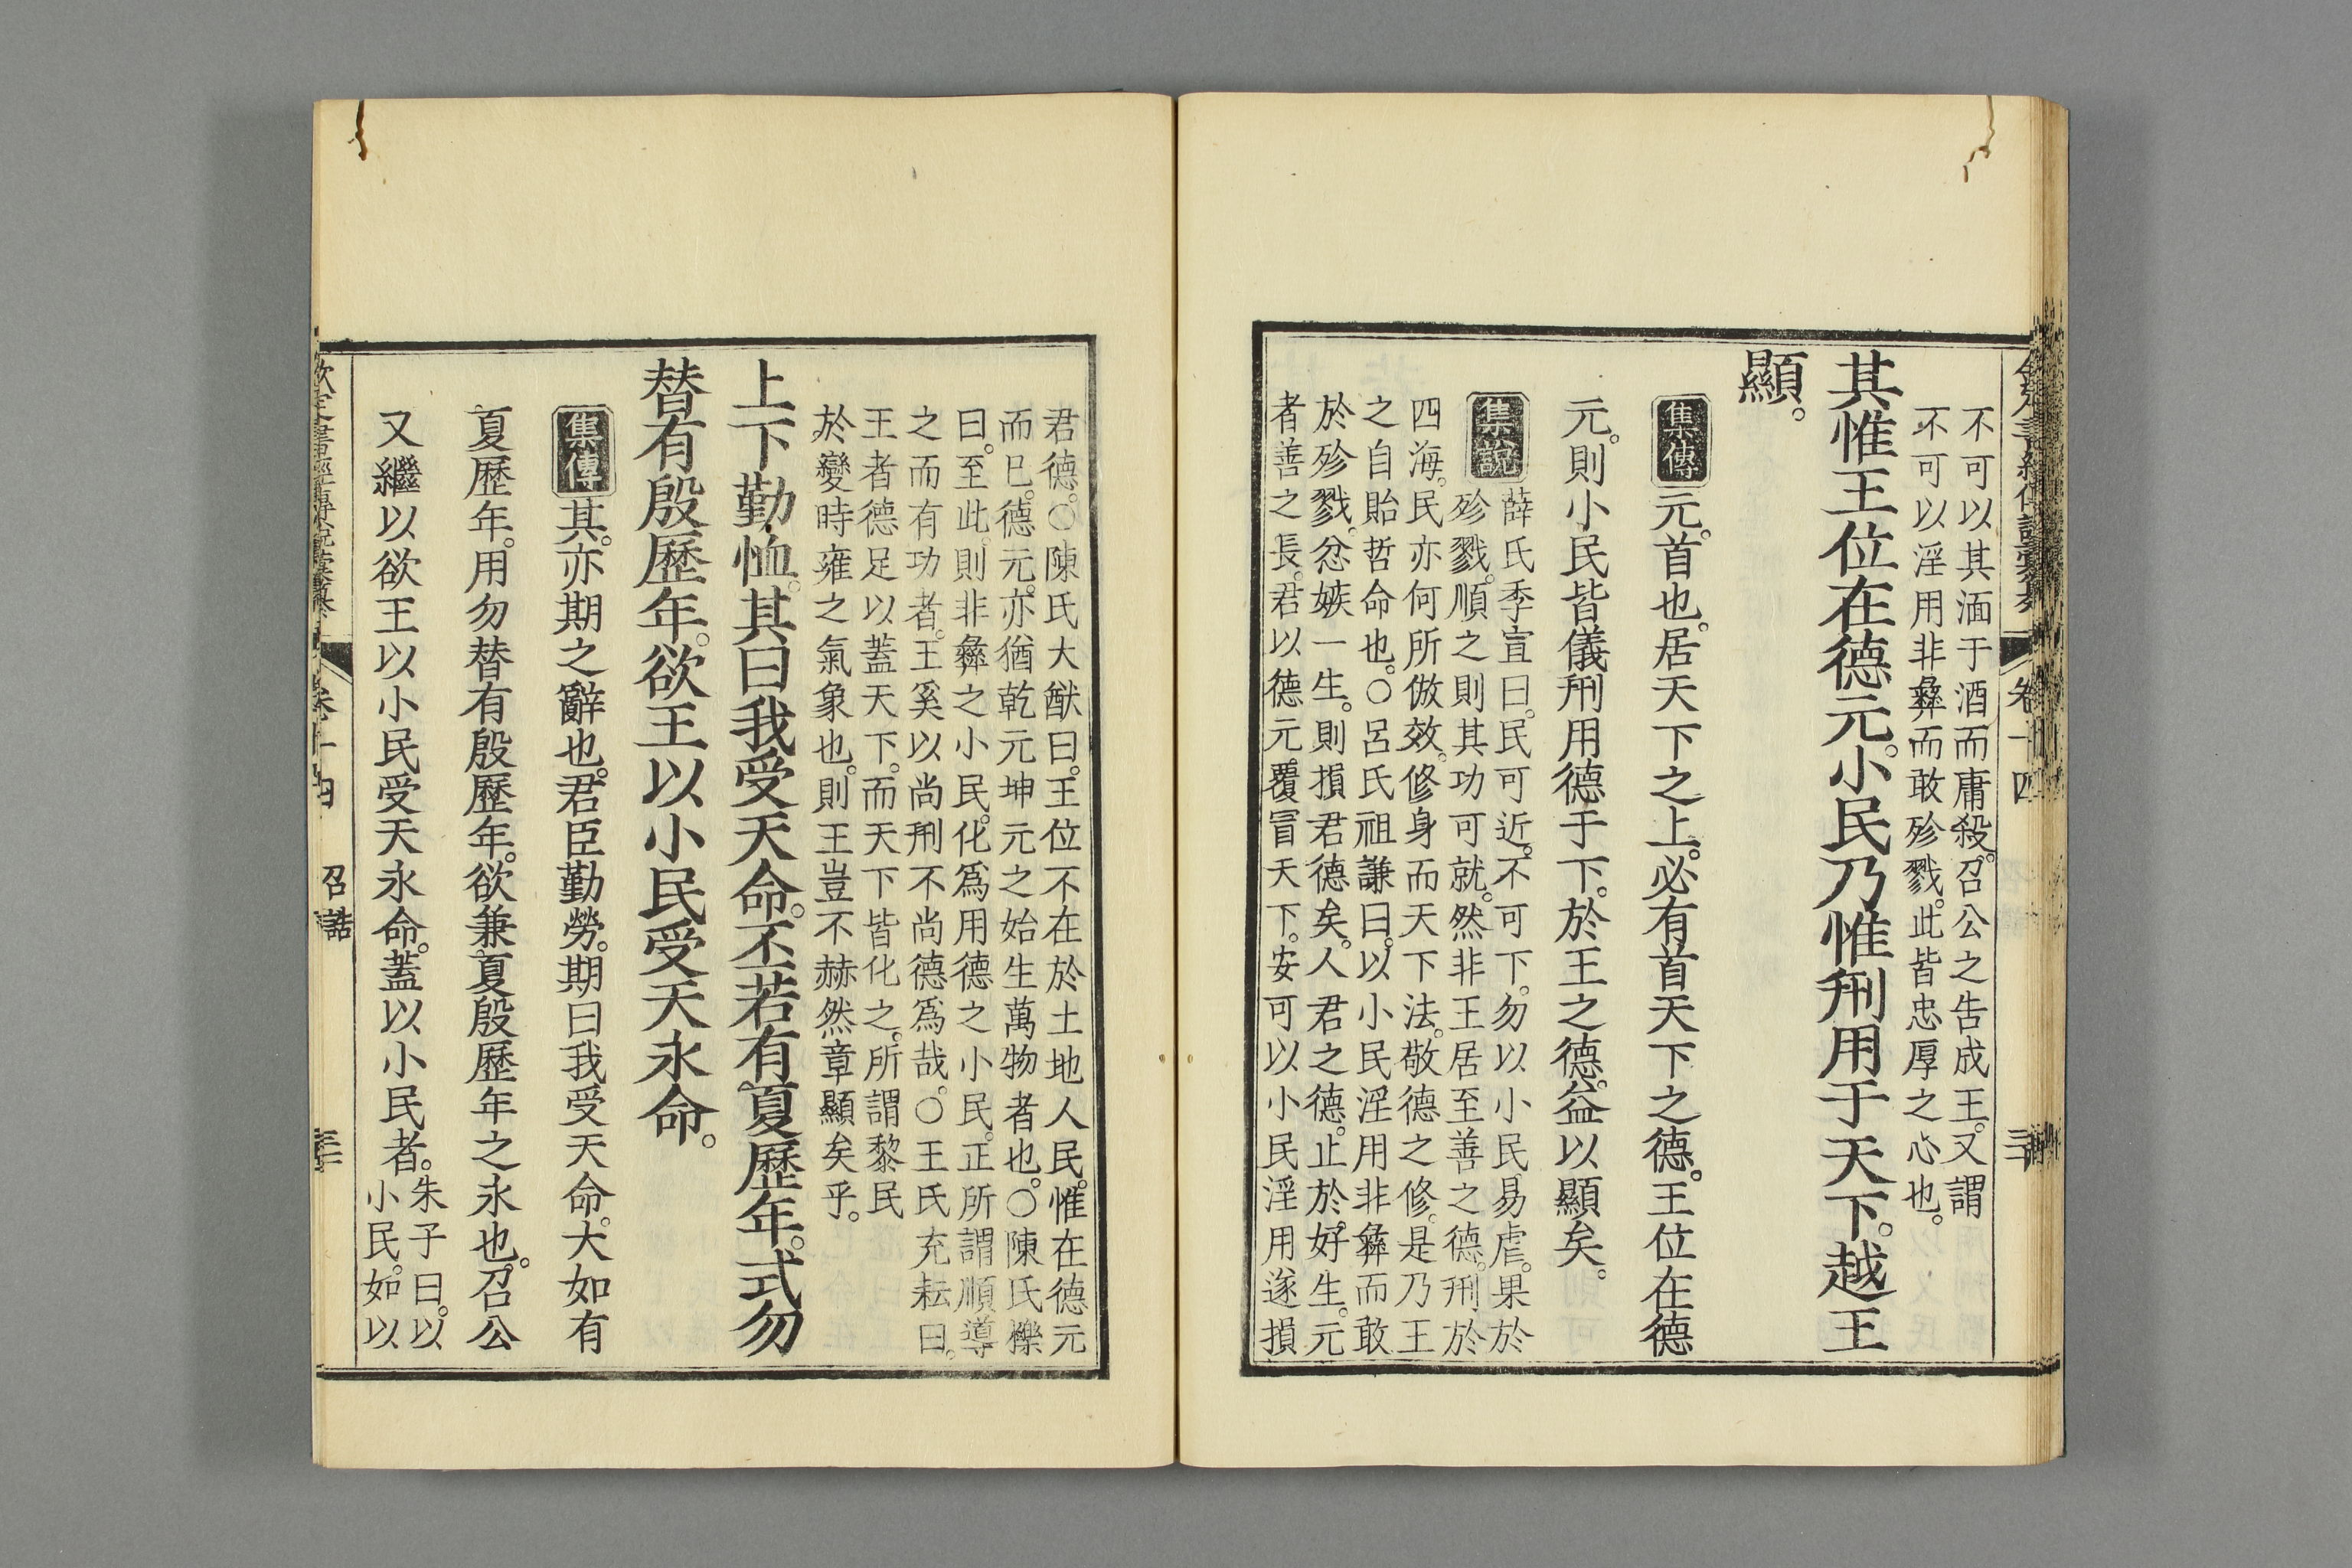 不可以其湎于酒而庸殺。召公之告成王。又謂
不可以淫用非彝而敢殄戮。此皆忠厚之心也。
其惟王位在德元。小民乃惟刑用于天下。越王
顯。
集傳 元。首也。居天下之上。必有首天下之德。王位在德
元。則小民皆儀刑用德于下。於王之德。益以顯矣。
集說 薛氏季宣曰。民可近。不可下。勿以小民易虐。果於
殄戮。順之則其功可就。然非王居至善之德。刑於
四海。民亦何所倣效。修身而天下法。敬德之修。是乃王
之自貽哲命也。○呂氏祖謙曰。以小民淫用非彝而敢
於殄戮。忿嫉一生。則損君德矣。人君之德。止於好生。元
者善之長。君以德元。覆冒天下。安可以小民淫用遂損
卷十四
君德。○陳氏大猷曰。王位不在於土地人民。惟在德元
而已。德元。亦猶乾元坤元之始生萬物者也。○陳氏櫟
曰。至此。則非彝之小民。化爲用德之小民。正所謂順導
之而有功者。王奚以尚刑不尚德爲哉。○王氏充耘曰。
王者德足以蓋天下。而天下皆化之。所謂黎民
於變時雍之氣象也。則王豈不赫然章顯矣乎。
上下勤恤。其曰我受天命。丕若有夏歷年。式勿
替有殷歷年。欲王以小民受天永命。
集傳 其。亦期之辭也。君臣勤勞。期曰我受天命。大如有
夏歷年。用勿替有殷歷年。欲兼夏殷歷年之永也。召公
又繼以欲王以小民受天永命。蓋以小民者。朱子曰。以
小民。如以
欽定書經傳說彙纂 卷十四 召誥